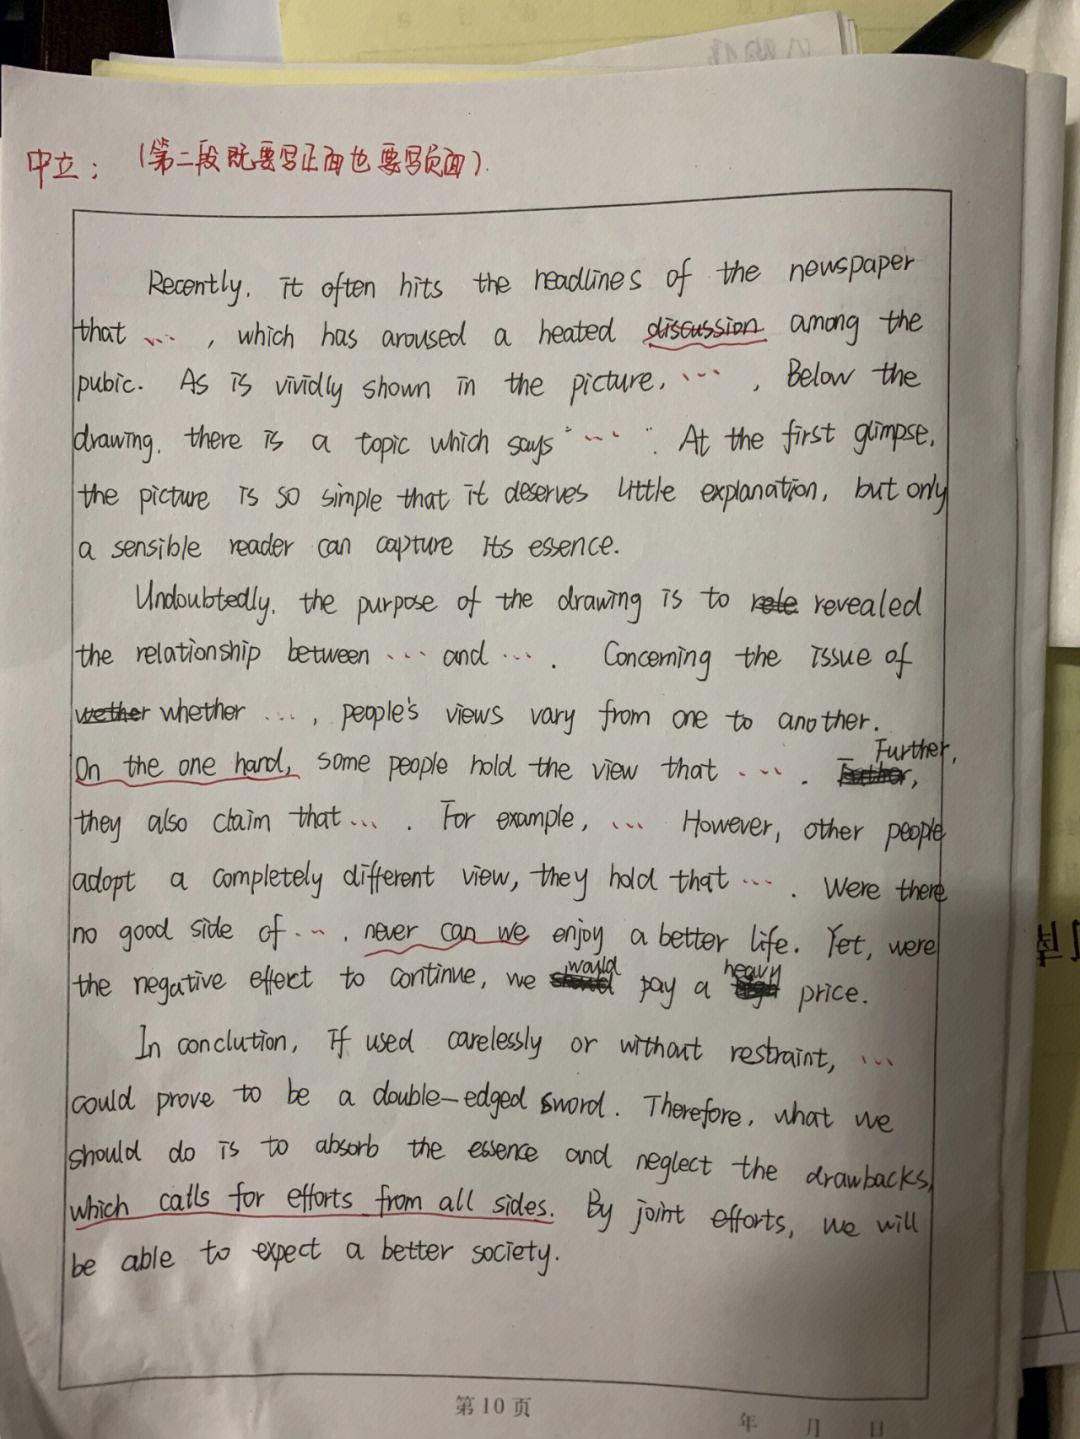 中立：（第二段既要写正面也要写负面）.
Recently, it often hits the headlines of the newspaper
that ..., which has aroused a heated discussion among the
pubic. As is vividly shown in the picture, ..., Below the
drawing, there is a topic which says "...". At the first glimpse,
the picture is so simple that it deserves little explanation, but only
a sensible reader can capture its essence.
Undoubtedly, the purpose of the drawing is to rele revealed
the relationship between ... and .... Concerning the issue of
wether whether ..., people's views vary from one to another.
On the one hand, some people hold the view that .... Further,
they also claim that .... For example, ... However, other people
adopt a completely different view, they hold that .... Were there
no good side of ..., never can we enjoy a better life. Yet, were
the negative effect to continue, we would pay a heavy price.
In conclution, if used carelessly or without restraint, ...
could prove to be a double-edged sword. Therefore, what we
should do is to absorb the essence and neglect the drawbacks,
which calls for efforts from all sides. By joint efforts, we will
be able to expect a better society.
第10页
年 月 日